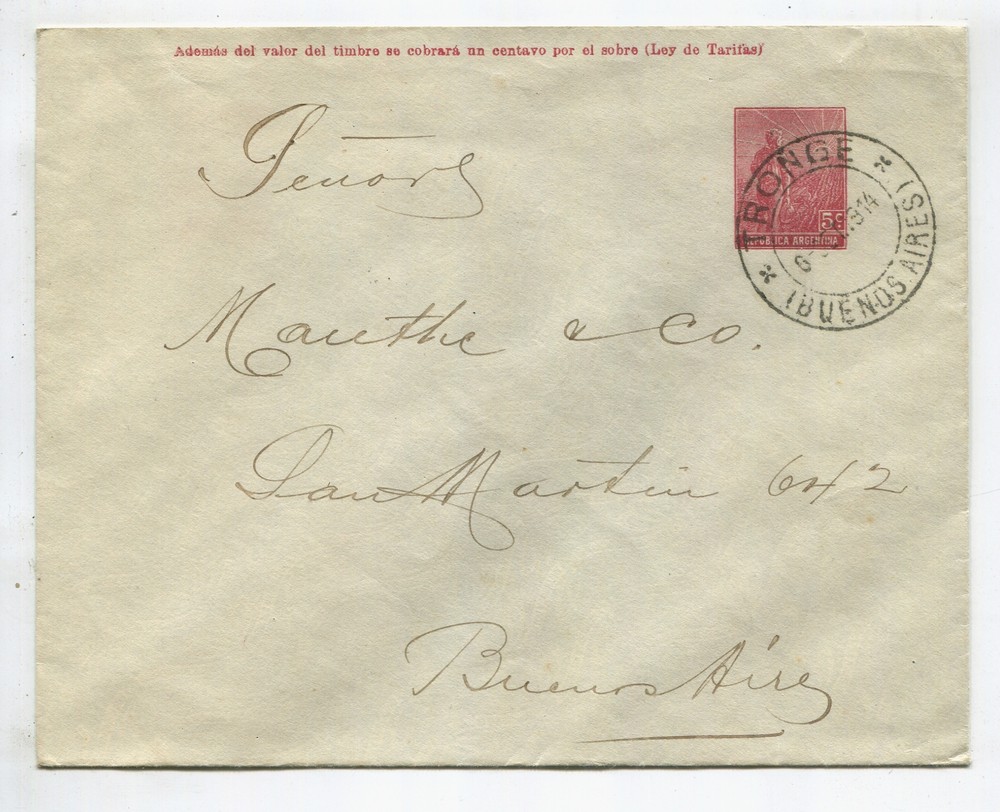 Además del valor del timbre se cobrará un centavo por el sobre (Ley de Tarifas)
5c
REPUBLICA ARGENTINA
TRONGE
(BUENOS AIRES)
Señores
& Co.
San Martin 642
Buenos Aires